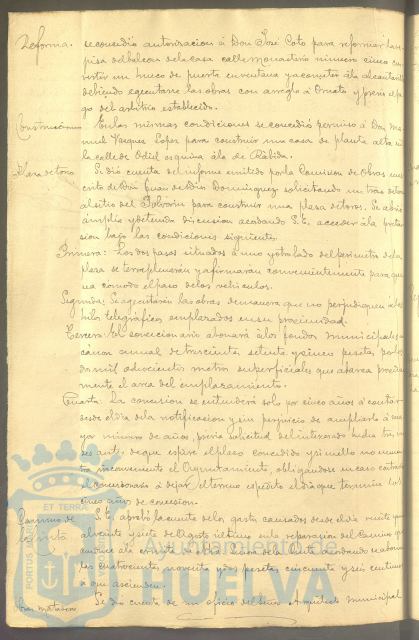 Reforma. se concedió autorización á Don José Coto para reformar la re-
pisa del balcon de la casa calle Monasterio número cinco con-
vertir un hueco de puerta en ventana y acometer á la alcantarilla
debiendo ejecutarse las obras con arreglo á Ornato y previo el pa-
go del arbitrio establecido.
Construcciones En las mismas condiciones se concedió permiso á Don Ma-
nuel Vazques Lopez para construir una casa de planta alta en
la calle de Odiel esquina á la de Rábida.
Plaza de toros S. dió cuenta del informe emitido por la Comision de Obras
de Don Juan de Dios Dominguez solicitando
al sitio del Polvorin para construir una plaza de toros. Se abrió
amplia y detenida discusion acordando S.E. acceder á la preten-
sion bajo las condiciones siguientes.
Primera: Los dos pasos situados á uno y otro lado del perímetro de la
plaza se terraplenaran y afirmaran convenientemente para que
sea cómodo el paso de los vehículos.
Segunda: Se ejecutarán las obras de manera que no perjudiquen á los
hilos telegráficos emplazados en su proximidad.
Tercera: El concesionario abonará á los fondos municipales
cánon anual de trescientas setenta y cinco pesetas, por los
dos mil adoscientos metros superficiales que abarca proxima-
mente el area del emplazamiento.
Cuarta: La concesion se entenderá solo por cinco años á contar
desde el dia de la notificacion y sin perjuicio de ampliarlo á ma-
yor número de años, previa solicitud del interesado hecha tres me-
ses antes de que espire el plazo concedido y si en ello no encuen-
tra inconveniente el Ayuntamiento, obligándose en caso contrario
el concesionario á dejar el terreno espedito el dia que terminen los
cinco años de concesion.
Camino de la Cinta S.E. aprobó la cuenta de los gastos causados desde el dia veinte
al veinte y siete de Agosto último en la reparacion del Camino que
conduce á la acordando se abonen
las cuatrocientas noventa y pesetas cincuenta y seis centimos
á que ascienden.
Obras matadero Se dió cuenta de un oficio del Señor Arquitecto municipal
PORTUS ET TERRAE
Ayuntamiento de
HUELVA